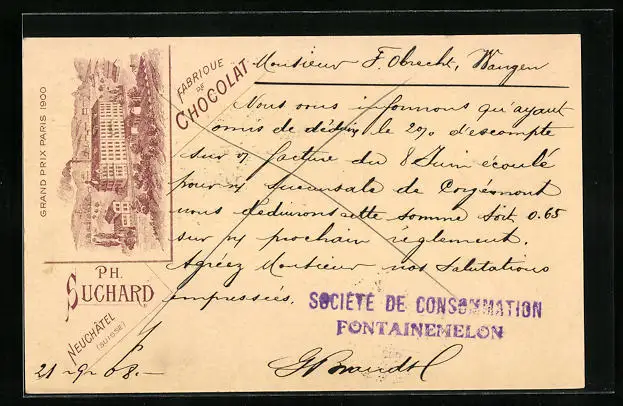 GRAND PRIX PARIS 1900
FABRIQUE
DE
CHOCOLAT
PH.
SUCHARD
NEUCHÂTEL
(SUISSE)
Monsieur F. Obrecht, Wangen
Nous vous informons qu'ayant
omis de déduire le 2% d'escompte
sur facture du 8 Juin écoulé
pour succursale de Corgémont
nous déduirons cette somme soit 0.65
sur prochain règlement.
Agréez Monsieur nos salutations
empressées.
SOCIÉTÉ DE CONSOMMATION
FONTAINEMELON
21 9 08.